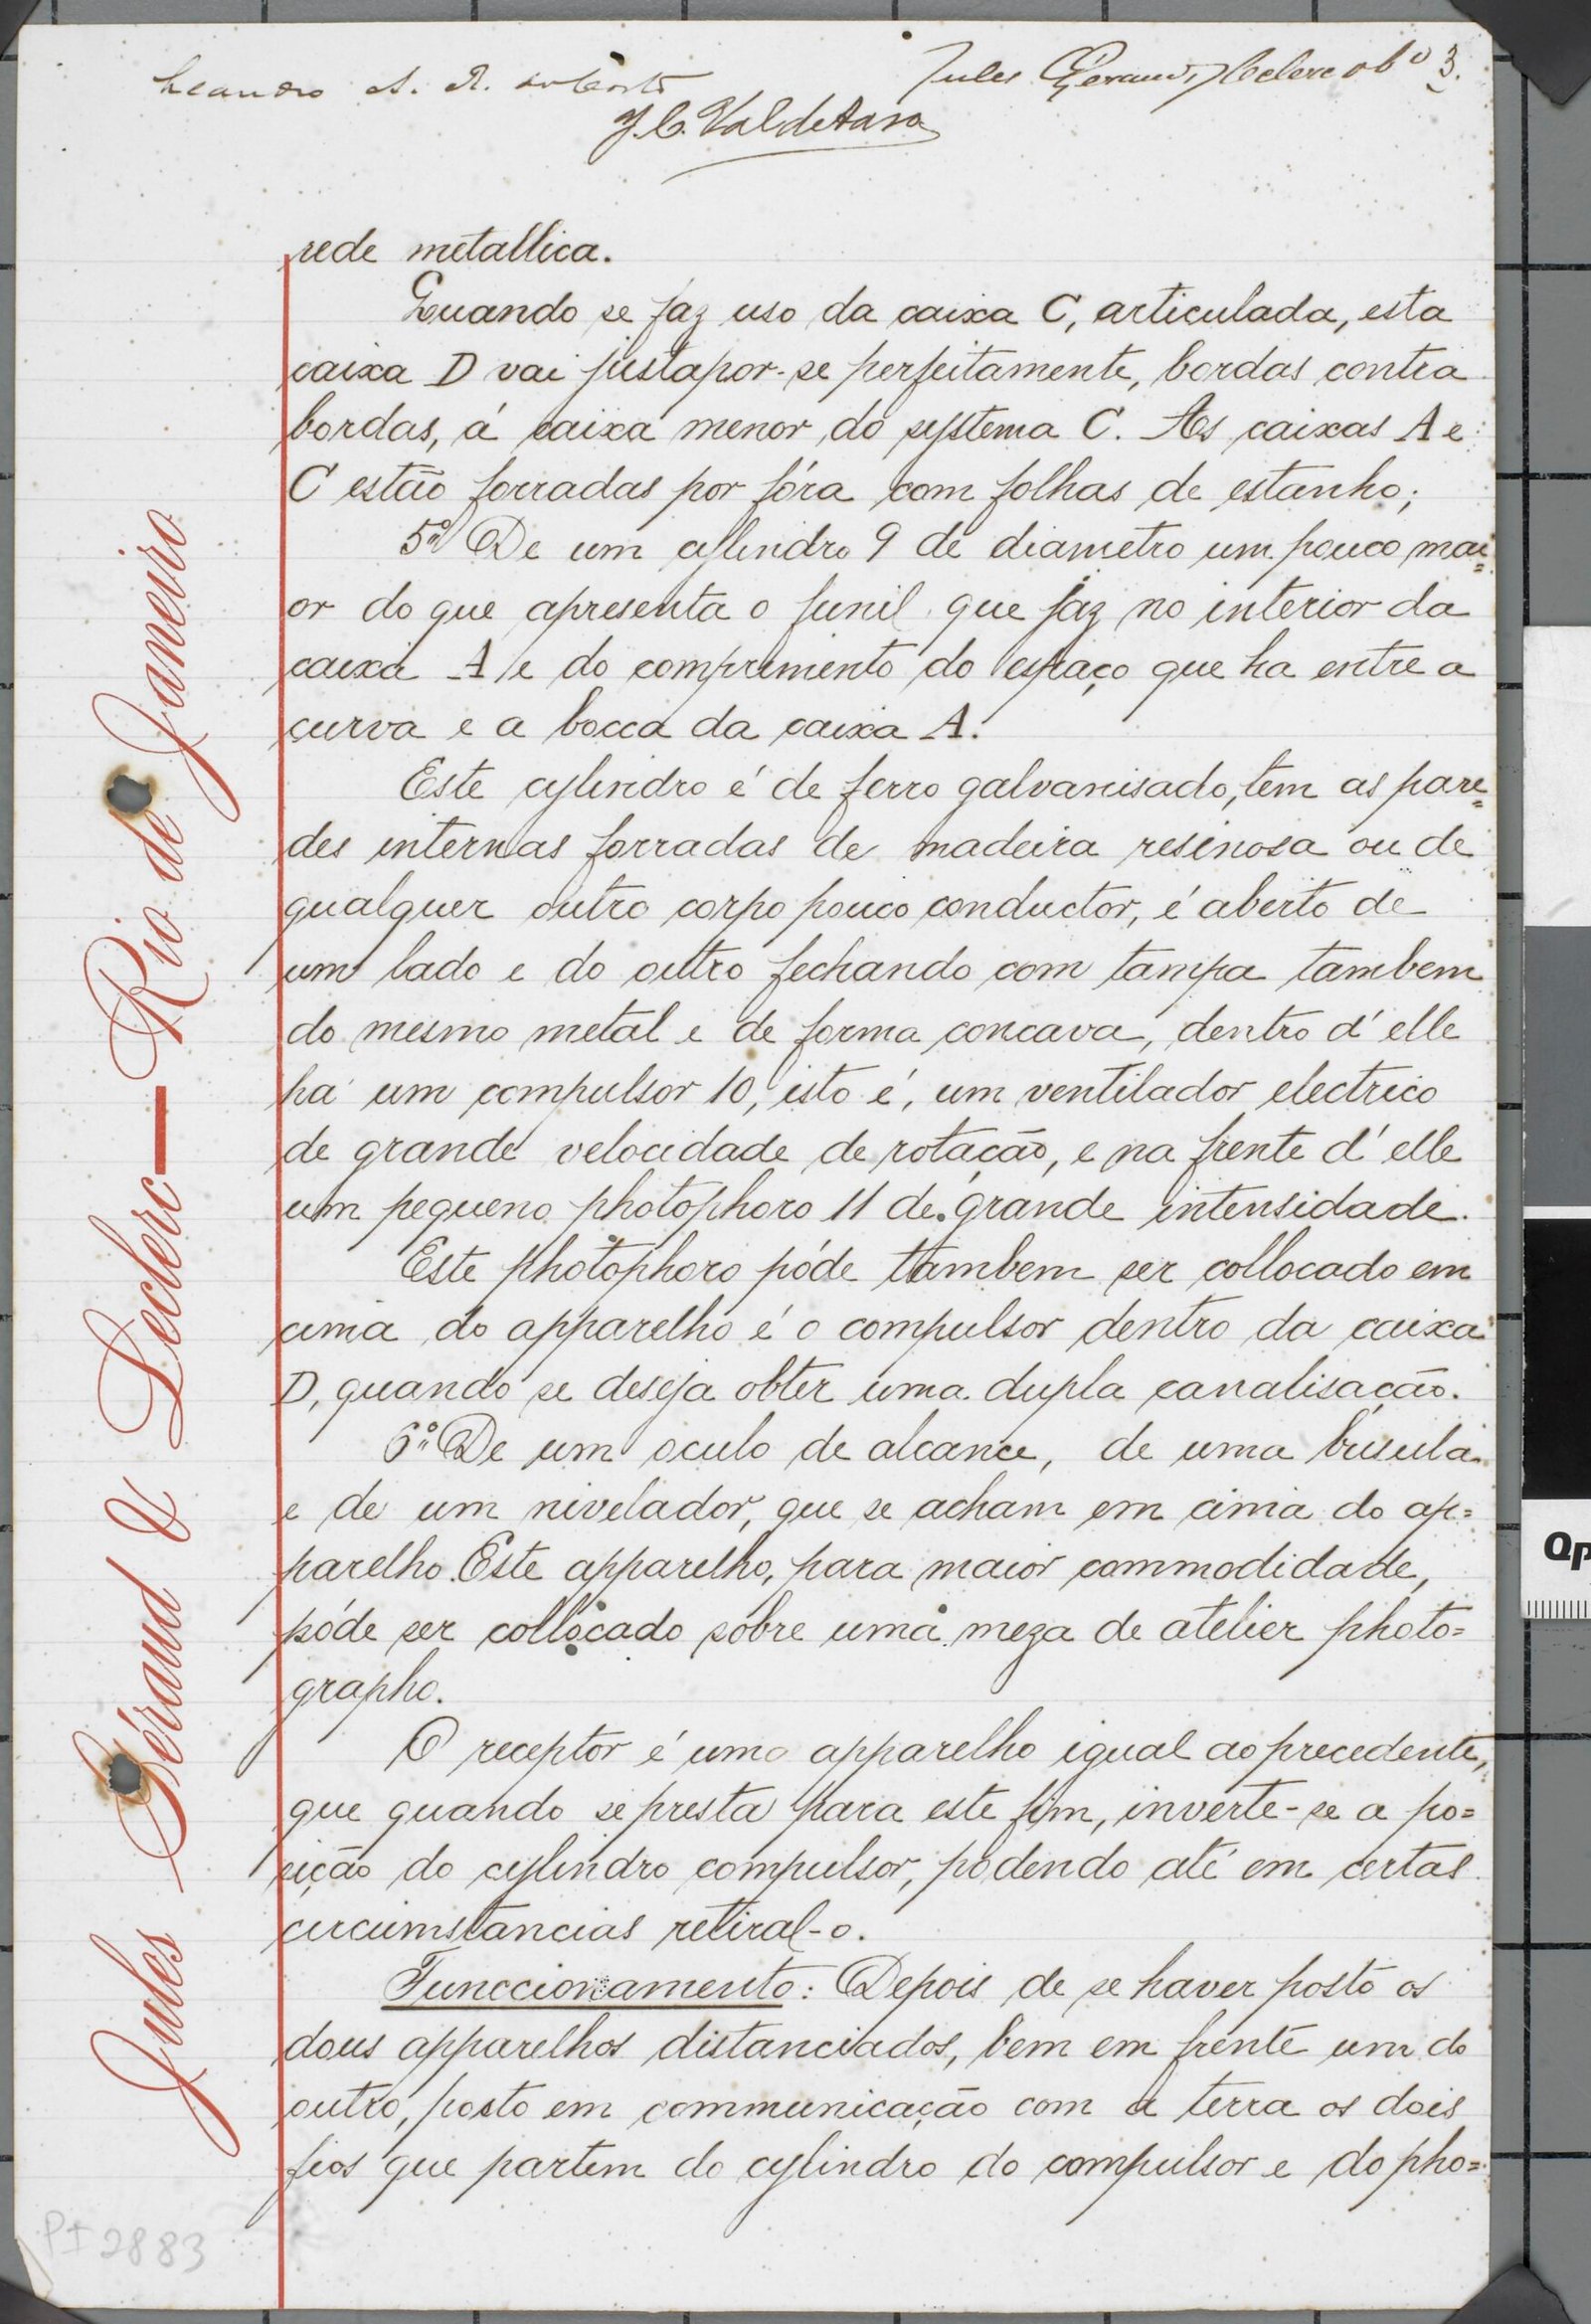 Jules Géraud, Leclerc & Cº 3.
Leandro A. R.
J. C. Valdetaro
rede metallica.
Quando se faz uso da caixa C, articulada, esta
caixa D vai justapor-se perfeitamente, bordas contra
bordas, á caixa menor do systema C. As caixas A e
C estão forradas por fóra com folhas de estanho;
5º De um cylindro 9 de diametro um pouco mai=
or do que apresenta o funil que jaz no interior da
caixa A e do comprimento do espaço que ha entre a
curva e a bocca da caixa A.
Este cylindro é de ferro galvanisado, tem as pare=
des internas forradas de madeira resinosa ou de
qualquer outro corpo pouco conductor, é aberto de
um lado e do outro fechando com tampa tambem
do mesmo metal e de forma concava, dentro d'elle
ha um compulsor 10, isto é, um ventilador electrico
de grande velocidade de rotação, e na frente d'elle
um pequeno photophoro 11 de grande intensidade.
Este photophoro póde tambem ser collocado em
cima do apparelho é o compulsor dentro da caixa
D, quando se deseja obter uma dupla canalisação.
6º De um oculo de alcance, de uma busula
e de um nivelador, que se acham em cima do ap=
parelho. Este apparelho, para maior commodidade,
póde ser collocado sobre uma meza de atelier photo=
grapho.
O receptor é um apparelho igual ao precedente,
que quando se presta para este fim, inverte-se a po=
sição do cylindro compulsor, podendo até em certas
circumstancias retiral-o.
Funccionamento: Depois de se haver posto os
dous apparelhos distanciados, bem em frente um do
outro, posto em communicação com a terra os dois
fios que partem do cylindro do compulsor e do pho=
Jules Géraud & Leclerc — Rio de Janeiro
PI 2883
Qp